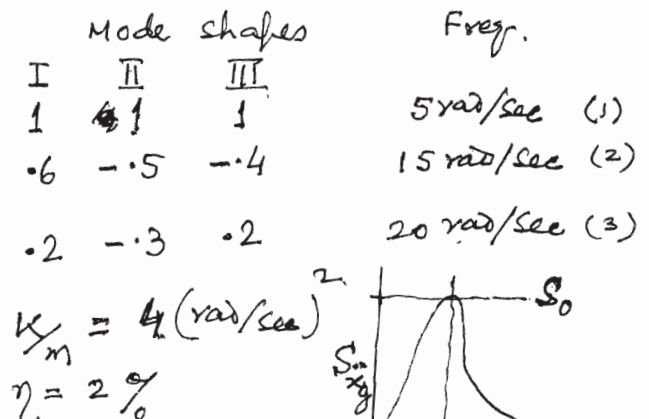 Mode shapes Freq.
I II III
1 1 1 5 rad/sec (1)
.6 -.5 -.4 15 rad/sec (2)
.2 -.3 .2 20 rad/sec (3)
K/m = 4 (rad/sec)²
S₀
Sẍg
η = 2 %